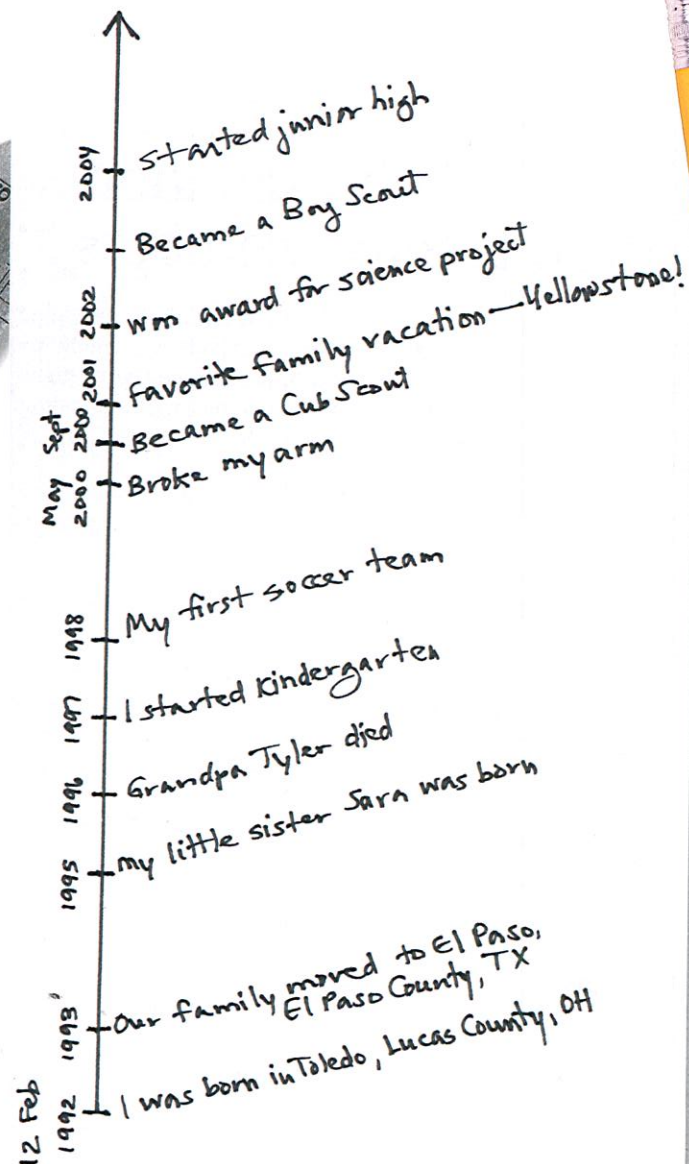 2004 started junior high
Became a Boy Scout
2002 won award for science project
2001 favorite family vacation—Yellowstone!
Sept 2000 Became a Cub Scout
May 2000 Broke my arm
1998 My first soccer team
1997 I started Kindergarten
1996 Grandpa Tyler died
1995 my little sister Sara was born
1993 Our family moved to El Paso,
El Paso County, TX
12 Feb 1992 I was born in Toledo, Lucas County, OH